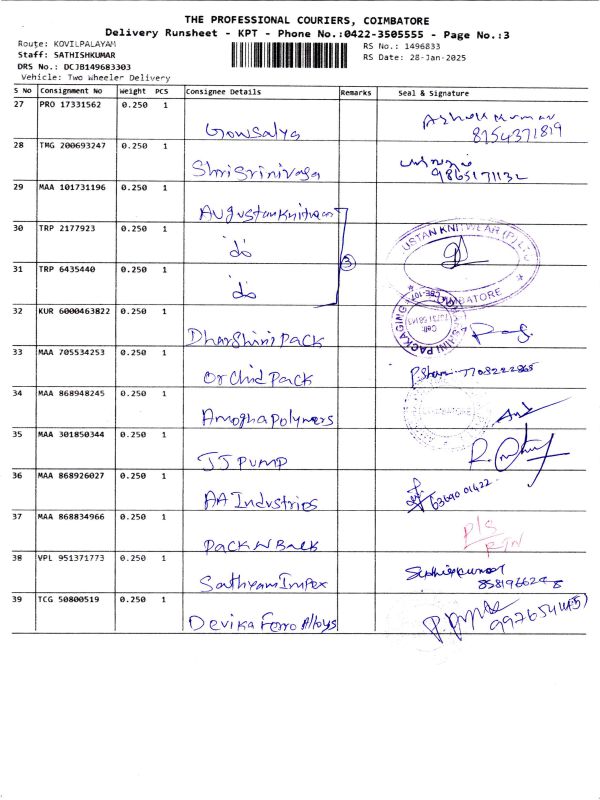 THE PROFESSIONAL COURIERS, COIMBATORE
Delivery Runsheet - KPT - Phone No.:0422-3505555 - Page No.:3
Route: KOVILPALAYAM
RS No.: 1496833
Staff: SATHISHKUMAR
RS Date: 28-Jan-2025
DRS No.: DCJB149683303
Vehicle: Two Wheeler Delivery
S No Consignment No Weight PCS Consignee Details Remarks Seal & Signature
27 PRO 17331562 0.250 1 Gowsalya Ashok Kumar
8754371819
28 TMG 200693247 0.250 1 Shri Srinivasa
9865171132
29 MAA 101731196 0.250 1 Augustan Knitwear
30 TRP 2177923 0.250 1 do
USTAN KNITWEAR (P) LTD
3
31 TRP 6435440 0.250 1 do
32 KUR 6000463822 0.250 1 Dharshini Pack
33 MAA 705534253 0.250 1 Orchid Pack
7708222865
34 MAA 868948245 0.250 1 Amogha Polymers
35 MAA 301850344 0.250 1 JJ PUMP
36 MAA 868926027 0.250 1 AA Industries
63690 01422
37 MAA 868834966 0.250 1 Pack N Back
38 VPL 951371773 0.250 1 Sathyam Impex Sathishkumar
39 TCG 50800519 0.250 1 Devika Ferro Alloys